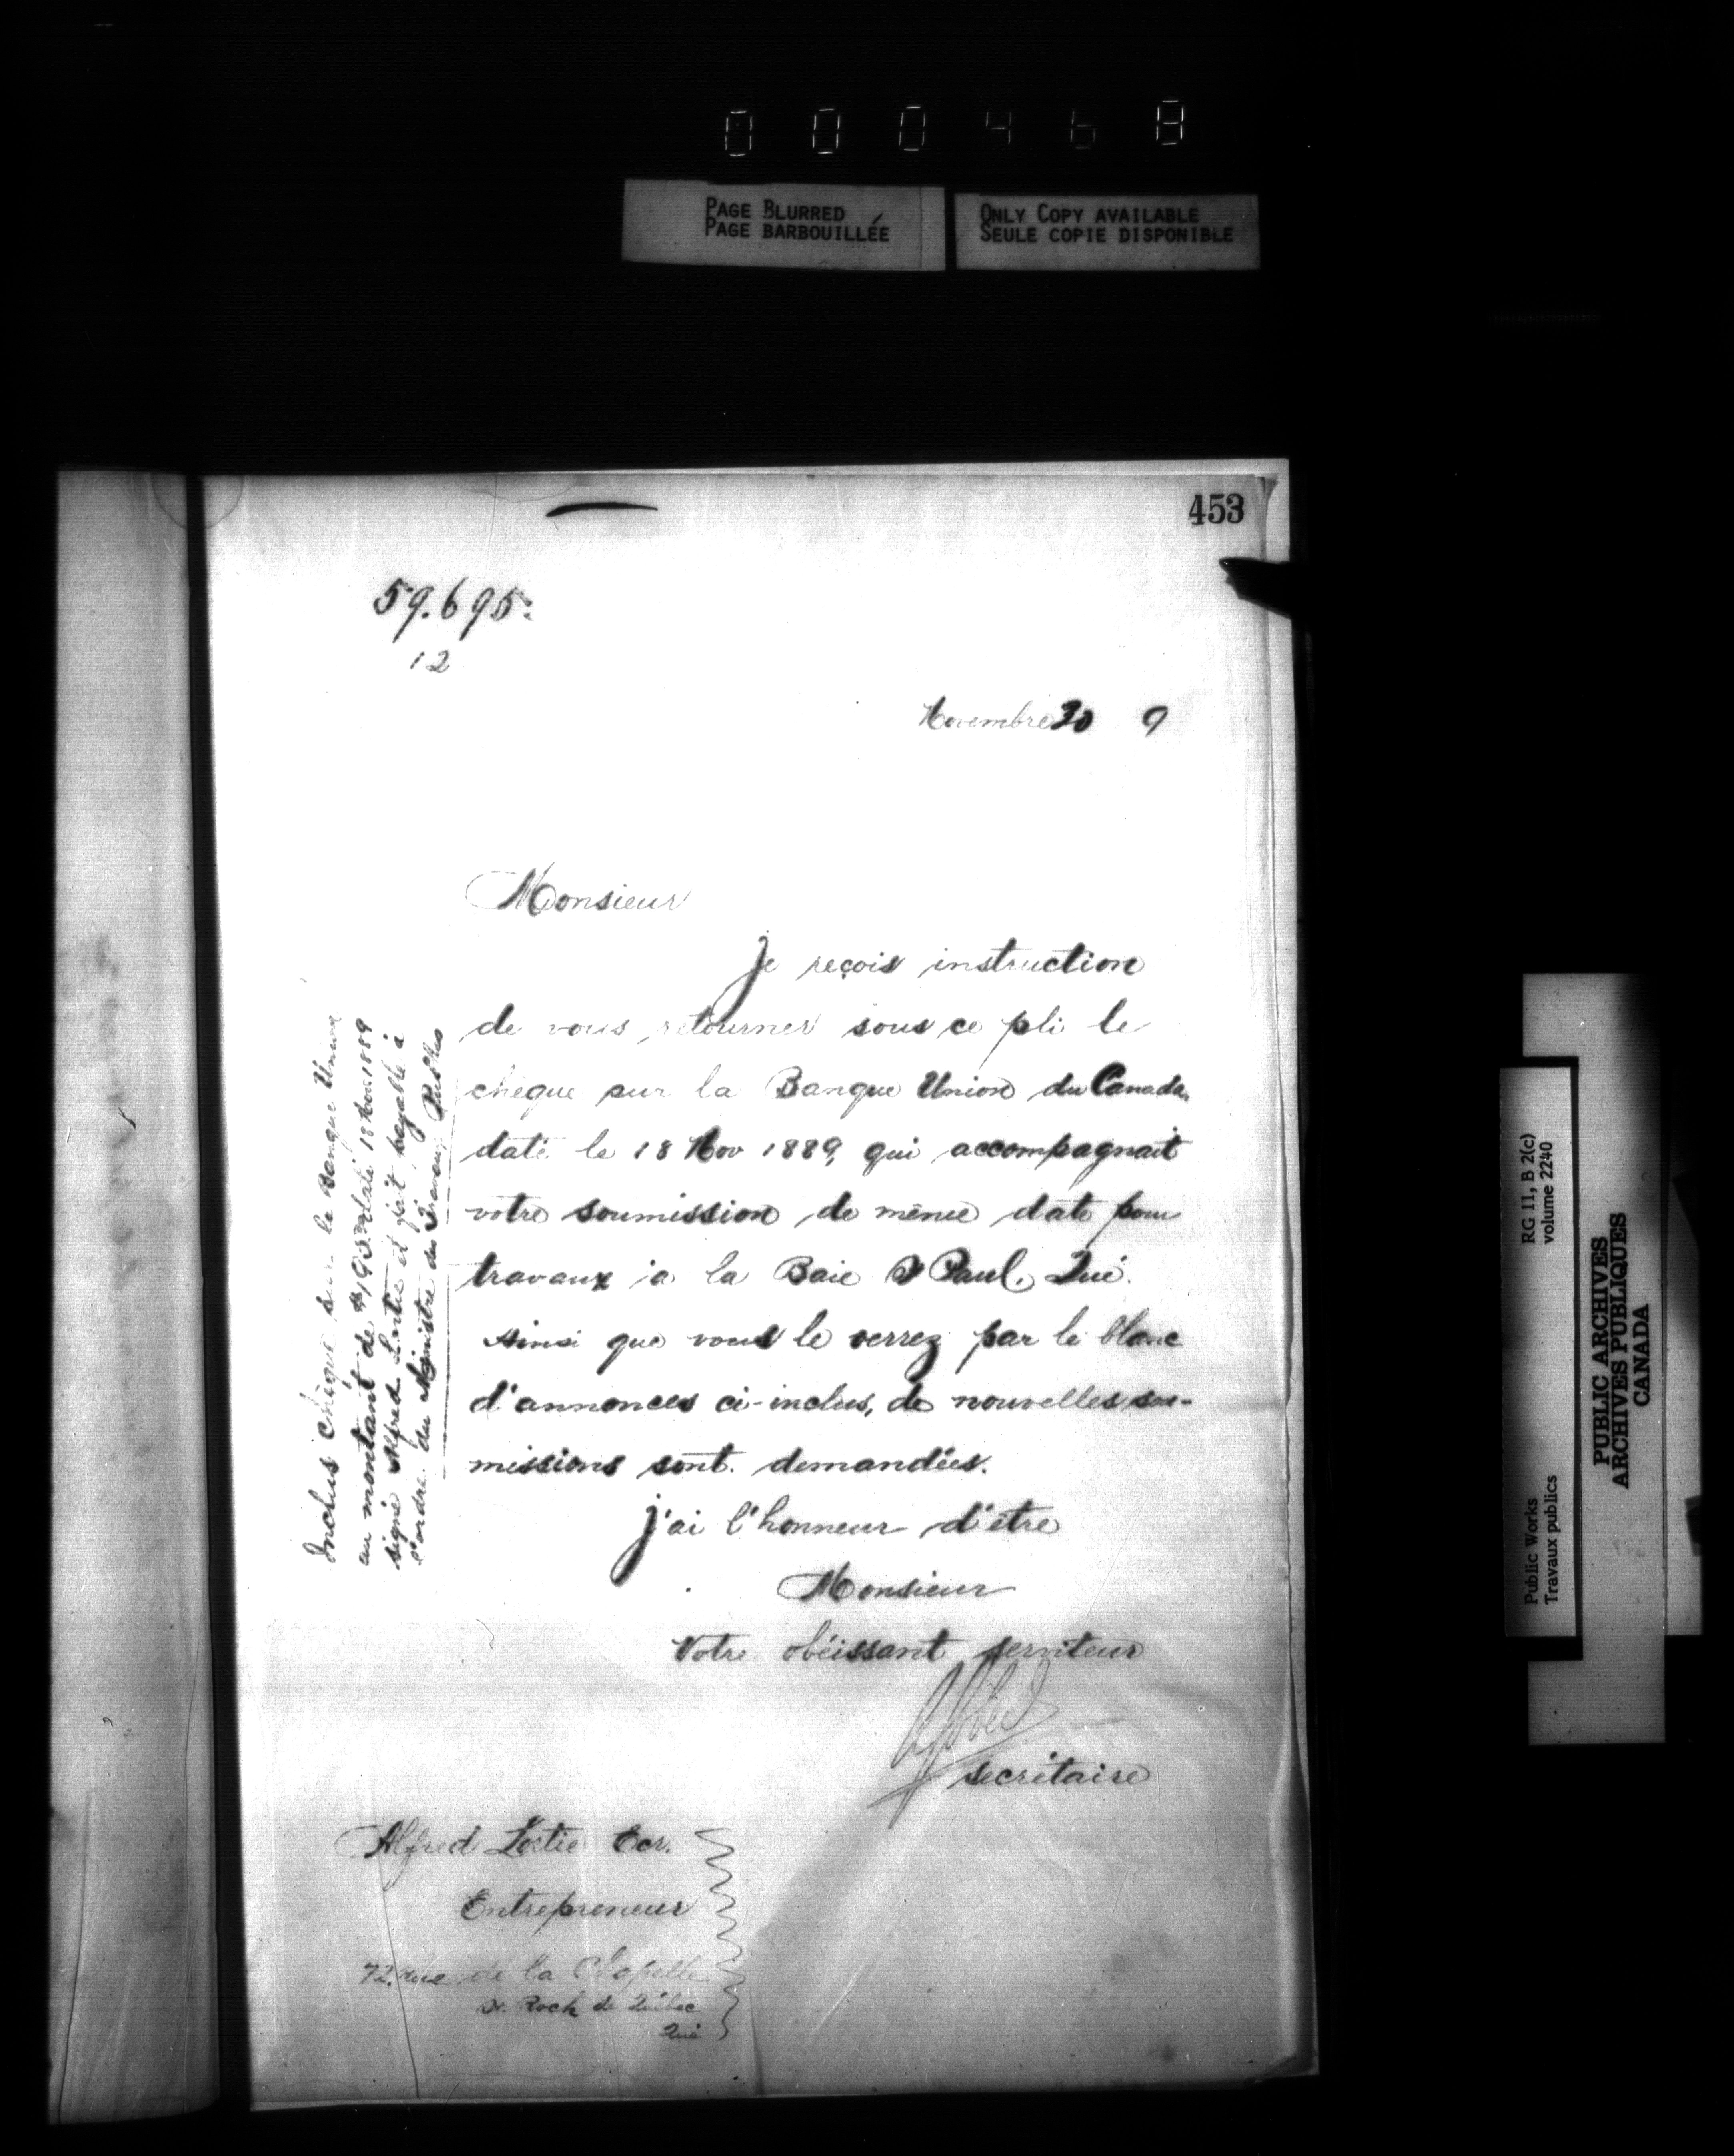 000468
PAGE BLURRED
PAGE BARBOUILLÉE
ONLY COPY AVAILABLE
SEULE COPIE DISPONIBLE
453
59.695.
12
Novembre 30 9
Monsieur
Je reçois instruction
de vous retourner sous ce pli le
chèque sur la Banque Union du Canada,
daté le 18 Nov 1889, qui accompagnait
votre soumission de même date pour
travaux à la Baie St Paul, Qué.
Ainsi que vous le verrez par le blanc
d'annonces ci-inclus, de nouvelles sou-
missions sont demandées.
J'ai l'honneur d'être
Monsieur
Votre obéissant serviteur
secrétaire
Alfred Lortie Ecr.
Entrepreneur
72, rue de la Chapelle
St. Roch de Québec
Qué
Inclus chèque sur la Banque Union
au montant de daté 18 Nov 1889
signé Alfred Lortie et fait payable à
l'ordre du Ministre des Travaux Publics
RG 11, B 2(c)
volume 2240
Public Works
Travaux publics
PUBLIC ARCHIVES
ARCHIVES PUBLIQUES
CANADA